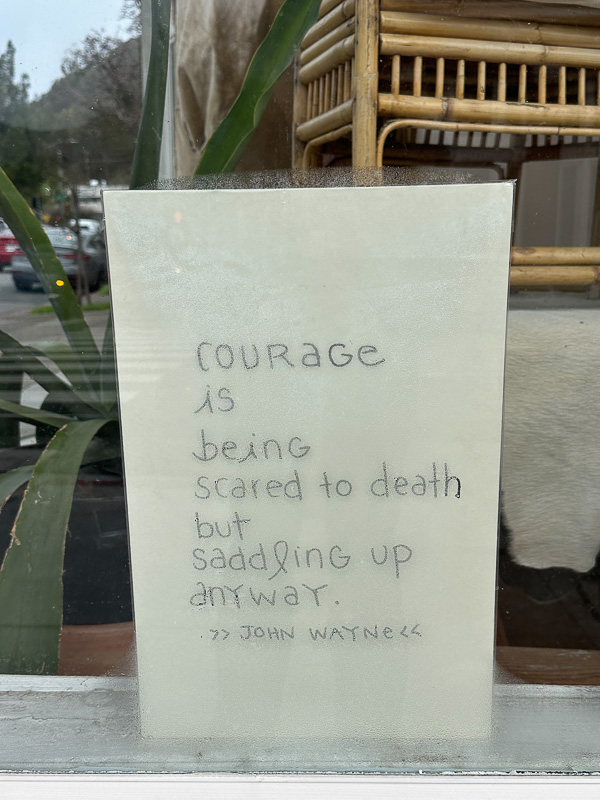 COURAGE
is
being
scared to death
but
saddling up
anyway.
>> JOHN WAYNE <<